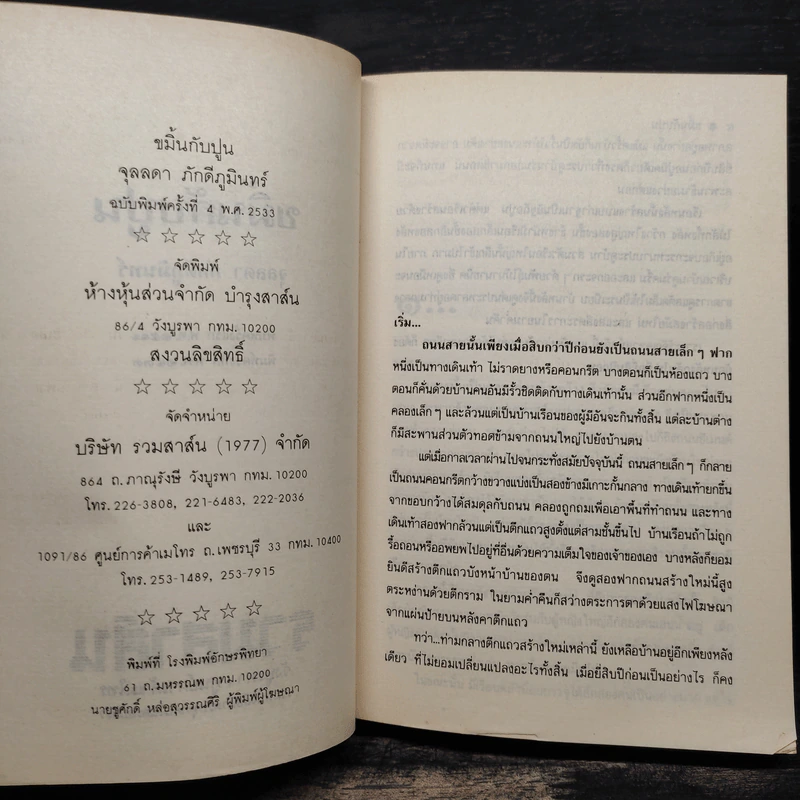 ขมิ้นกับปูน
จุลลดา ภักดีภูมินทร์
ฉบับพิมพ์ครั้งที่ 4 พ.ศ. 2533
☆ ☆ ☆ ☆ ☆
จัดพิมพ์
ห้างหุ้นส่วนจำกัด บำรุงสาส์น
86/4 วังบูรพา กทม. 10200
สงวนลิขสิทธิ์
☆ ☆ ☆ ☆ ☆
จัดจำหน่าย
บริษัท รวมสาส์น (1977) จำกัด
864 ถ.ภาณุรังษี วังบูรพา กทม. 10200
โทร. 226-3808, 221-6483, 222-2036
และ
1091/86 ศูนย์การค้าเมโทร ถ.เพชรบุรี 33 กทม. 10400
โทร. 253-1489, 253-7915
☆ ☆ ☆ ☆ ☆
พิมพ์ที่ โรงพิมพ์อักษรพิทยา
61 ถ.มหรรณพ กทม. 10200
นายชูศักดิ์ หล่อสุวรรณศิริ ผู้พิมพ์ผู้โฆษณา
เริ่ม...
ถนนสายนั้นเพียงเมื่อสิบกว่าปีก่อนยังเป็นถนนสายเล็กๆ ฟาก
หนึ่งเป็นทางเดินเท้า ไม่ราดยางหรือคอนกรีต บางตอนก็เป็นห้องแถว บาง
ตอนก็คั่นด้วยบ้านคนอันมีรั้วชิดติดกับทางเดินเท้านั้น ส่วนอีกฟากหนึ่งเป็น
คลองเล็กๆ และล้วนแต่เป็นบ้านเรือนของผู้มีอันจะกินทั้งสิ้น แต่ละบ้านต่าง
ก็มีสะพานส่วนตัวทอดข้ามจากถนนใหญ่ไปยังบ้านตน
แต่เมื่อกาลเวลาผ่านไปจนกระทั่งสมัยปัจจุบันนี้ ถนนสายเล็กๆ ก็กลาย
เป็นถนนคอนกรีตกว้างขวางแบ่งเป็นสองข้างมีเกาะกั้นกลาง ทางเดินเท้ายกขึ้น
จากขอบกว้างได้สมดุลกับถนน คลองถูกถมเพื่อเอาพื้นที่ทำถนน และทาง
เดินเท้าสองฟากล้วนแต่เป็นตึกแถวสูงตั้งแต่สามชั้นขึ้นไป บ้านเรือนถ้าไม่ถูก
รื้อถอนหรืออพยพไปอยู่ที่อื่นด้วยความเต็มใจของเจ้าของเอง บางหลังก็ยอม
ยินดีสร้างตึกแถวบังหน้าบ้านของตน จึงดูสองฟากถนนสร้างใหม่นี้สูง
ตระหง่านด้วยตึกราม ในยามค่ำคืนก็สว่างตระการตาด้วยแสงไฟโฆษณา
จากแผ่นป้ายบนหลังคาตึกแถว
ทว่า...ท่ามกลางตึกแถวสร้างใหม่เหล่านี้ ยังเหลือบ้านอยู่อีกเพียงหลัง
เดียว ที่ไม่ยอมเปลี่ยนแปลงอะไรทั้งสิ้น เมื่อยี่สิบปีก่อนเป็นอย่างไร ก็คง